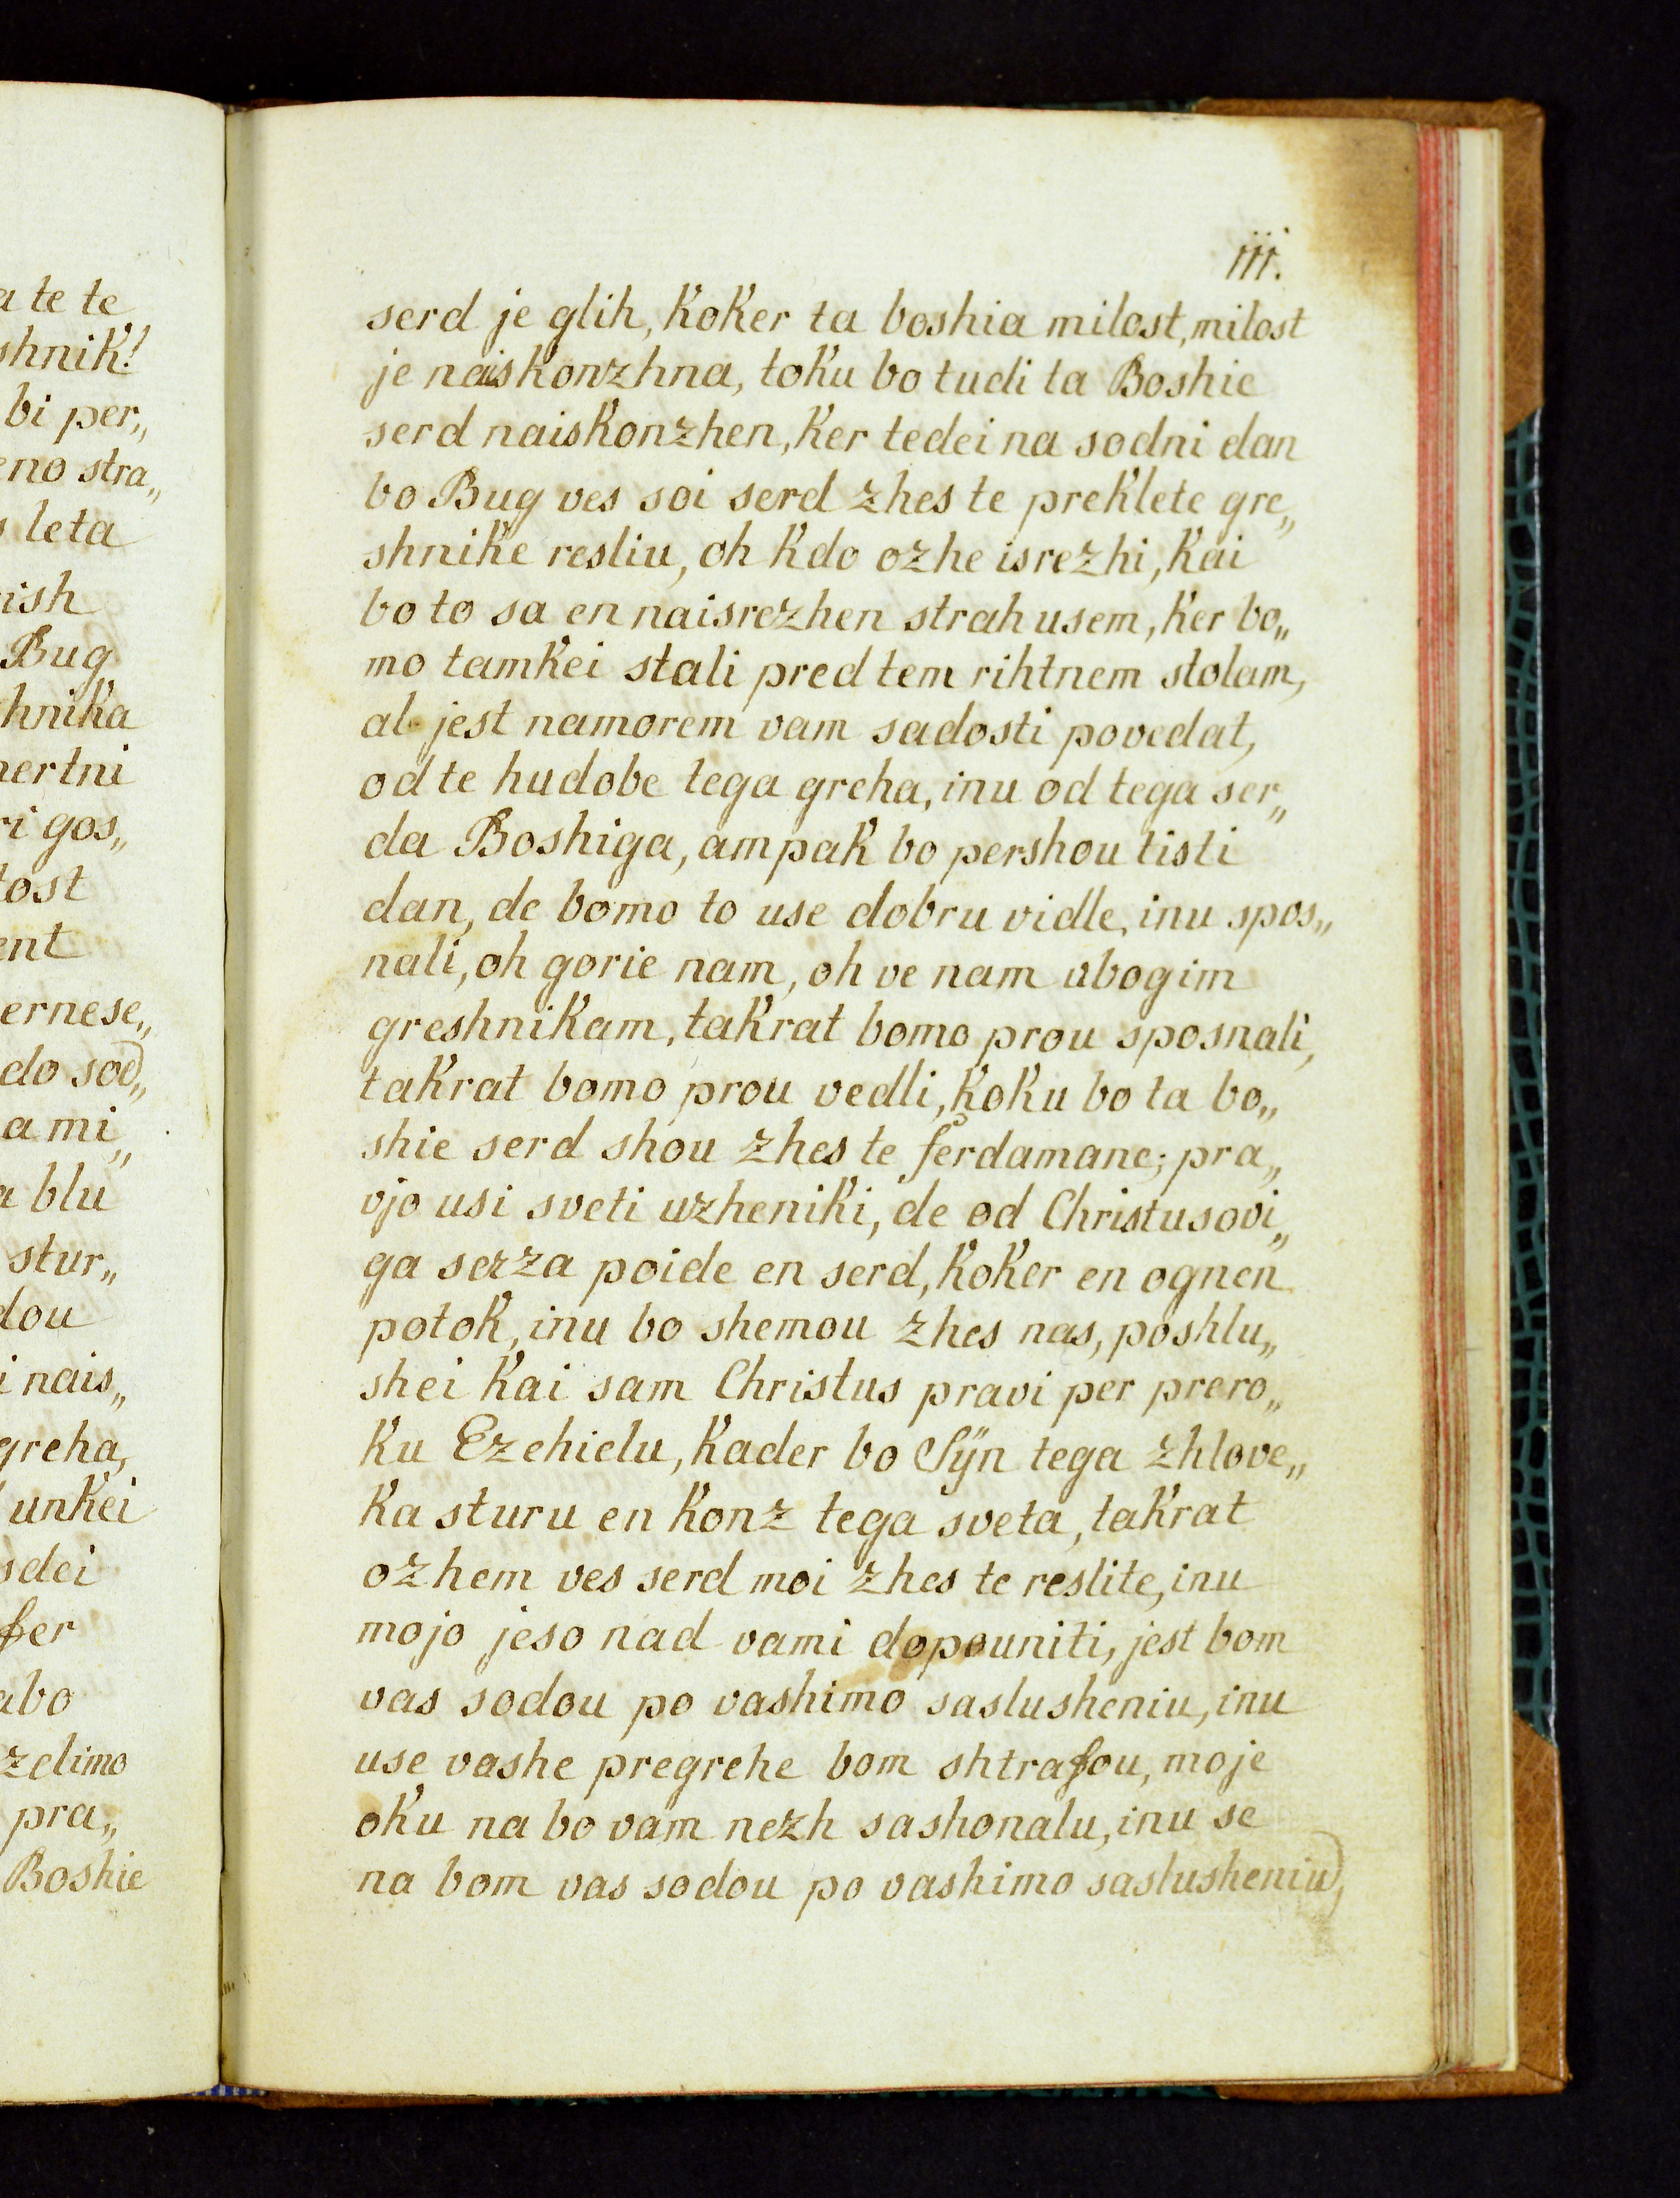 a te te
shnik!
bi per„
eno stra„
leta
ish
Bug
hnika
ertni
ri gos„
tost
ent
ernese„
do sod„
a mi„
a blu
stur„
dou
i nais„
greha,
unkei
sdei
fer
abo
zelimo
pra„
Boshie
iii.
serd je glih, koker ta boshia milost, milost
je naiskonzhna, toku bo tudi ta Boshie
serd naiskonzhen, ker tedei na sodni dan
bo Bug ves soi serd zhes te preklete gre„
shnike resliu, oh kdo ozhe isrezhi, kai
bo to sa en naisrezhen strah usem, ker bo„
mo tamkei stali pred tem rihtnem stolam,
al jest namorem vam sadosti povedat,
od te hudobe tega greha, inu od tega ser„
da Boshiga, ampak bo pershou tisti
dan, de bomo to use dobru vidle, inu spos„
nali, oh gorie nam, oh ve nam ubogim
greshnikam, takrat bomo prou sposnali,
takrat bomo prou vedli, koku bo ta bo„
shie serd shou zhes te ferdamane; pra„
vjo usi sveti uzheniki, de od Christusovi„
ga serza poide en serd, koker en ognen
potok, inu bo shemou zhes nas, poshlu„
shei kai sam Christus pravi per prero„
ku Ezehielu, kader bo Sÿn tega zhlove„
ka sturu en konz tega sveta, takrat
ozhem ves serd moi zhes te reslite, inu
mojo jeso nad vami dopouniti, jest bom
vas sodou po vashimo saslusheniu, inu
use vashe pregrehe bom shtrafou, moje
oku na bo vam nezh sashonalu, inu se
na bom vas sodou po vashimo saslusheniu,